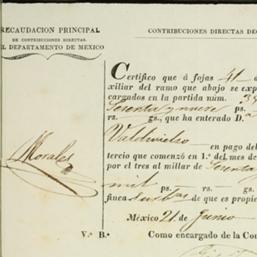 RECAUDACION PRINCIPAL
DE CONTRIBUCIONES DIRECTAS
EL DEPARTAMENTO DE MÉXICO
CONTRIBUCIONES DIRECTAS DE
Certifico que á fojas 41 d
xiliar del ramo que abajo se exp
cargados en la partida núm. 3
Sesenta y nueve ps.
rs. gs., que ha enterado D.ª
Valdivielso
en pago del
tercio que comenzó en 1.º del mes de
por el tres al millar de Sesenta
mil ps. rs. gs.
finca de que es propie
Morales
México 21 de Junio
V.º B.º
Como encargado de la Co